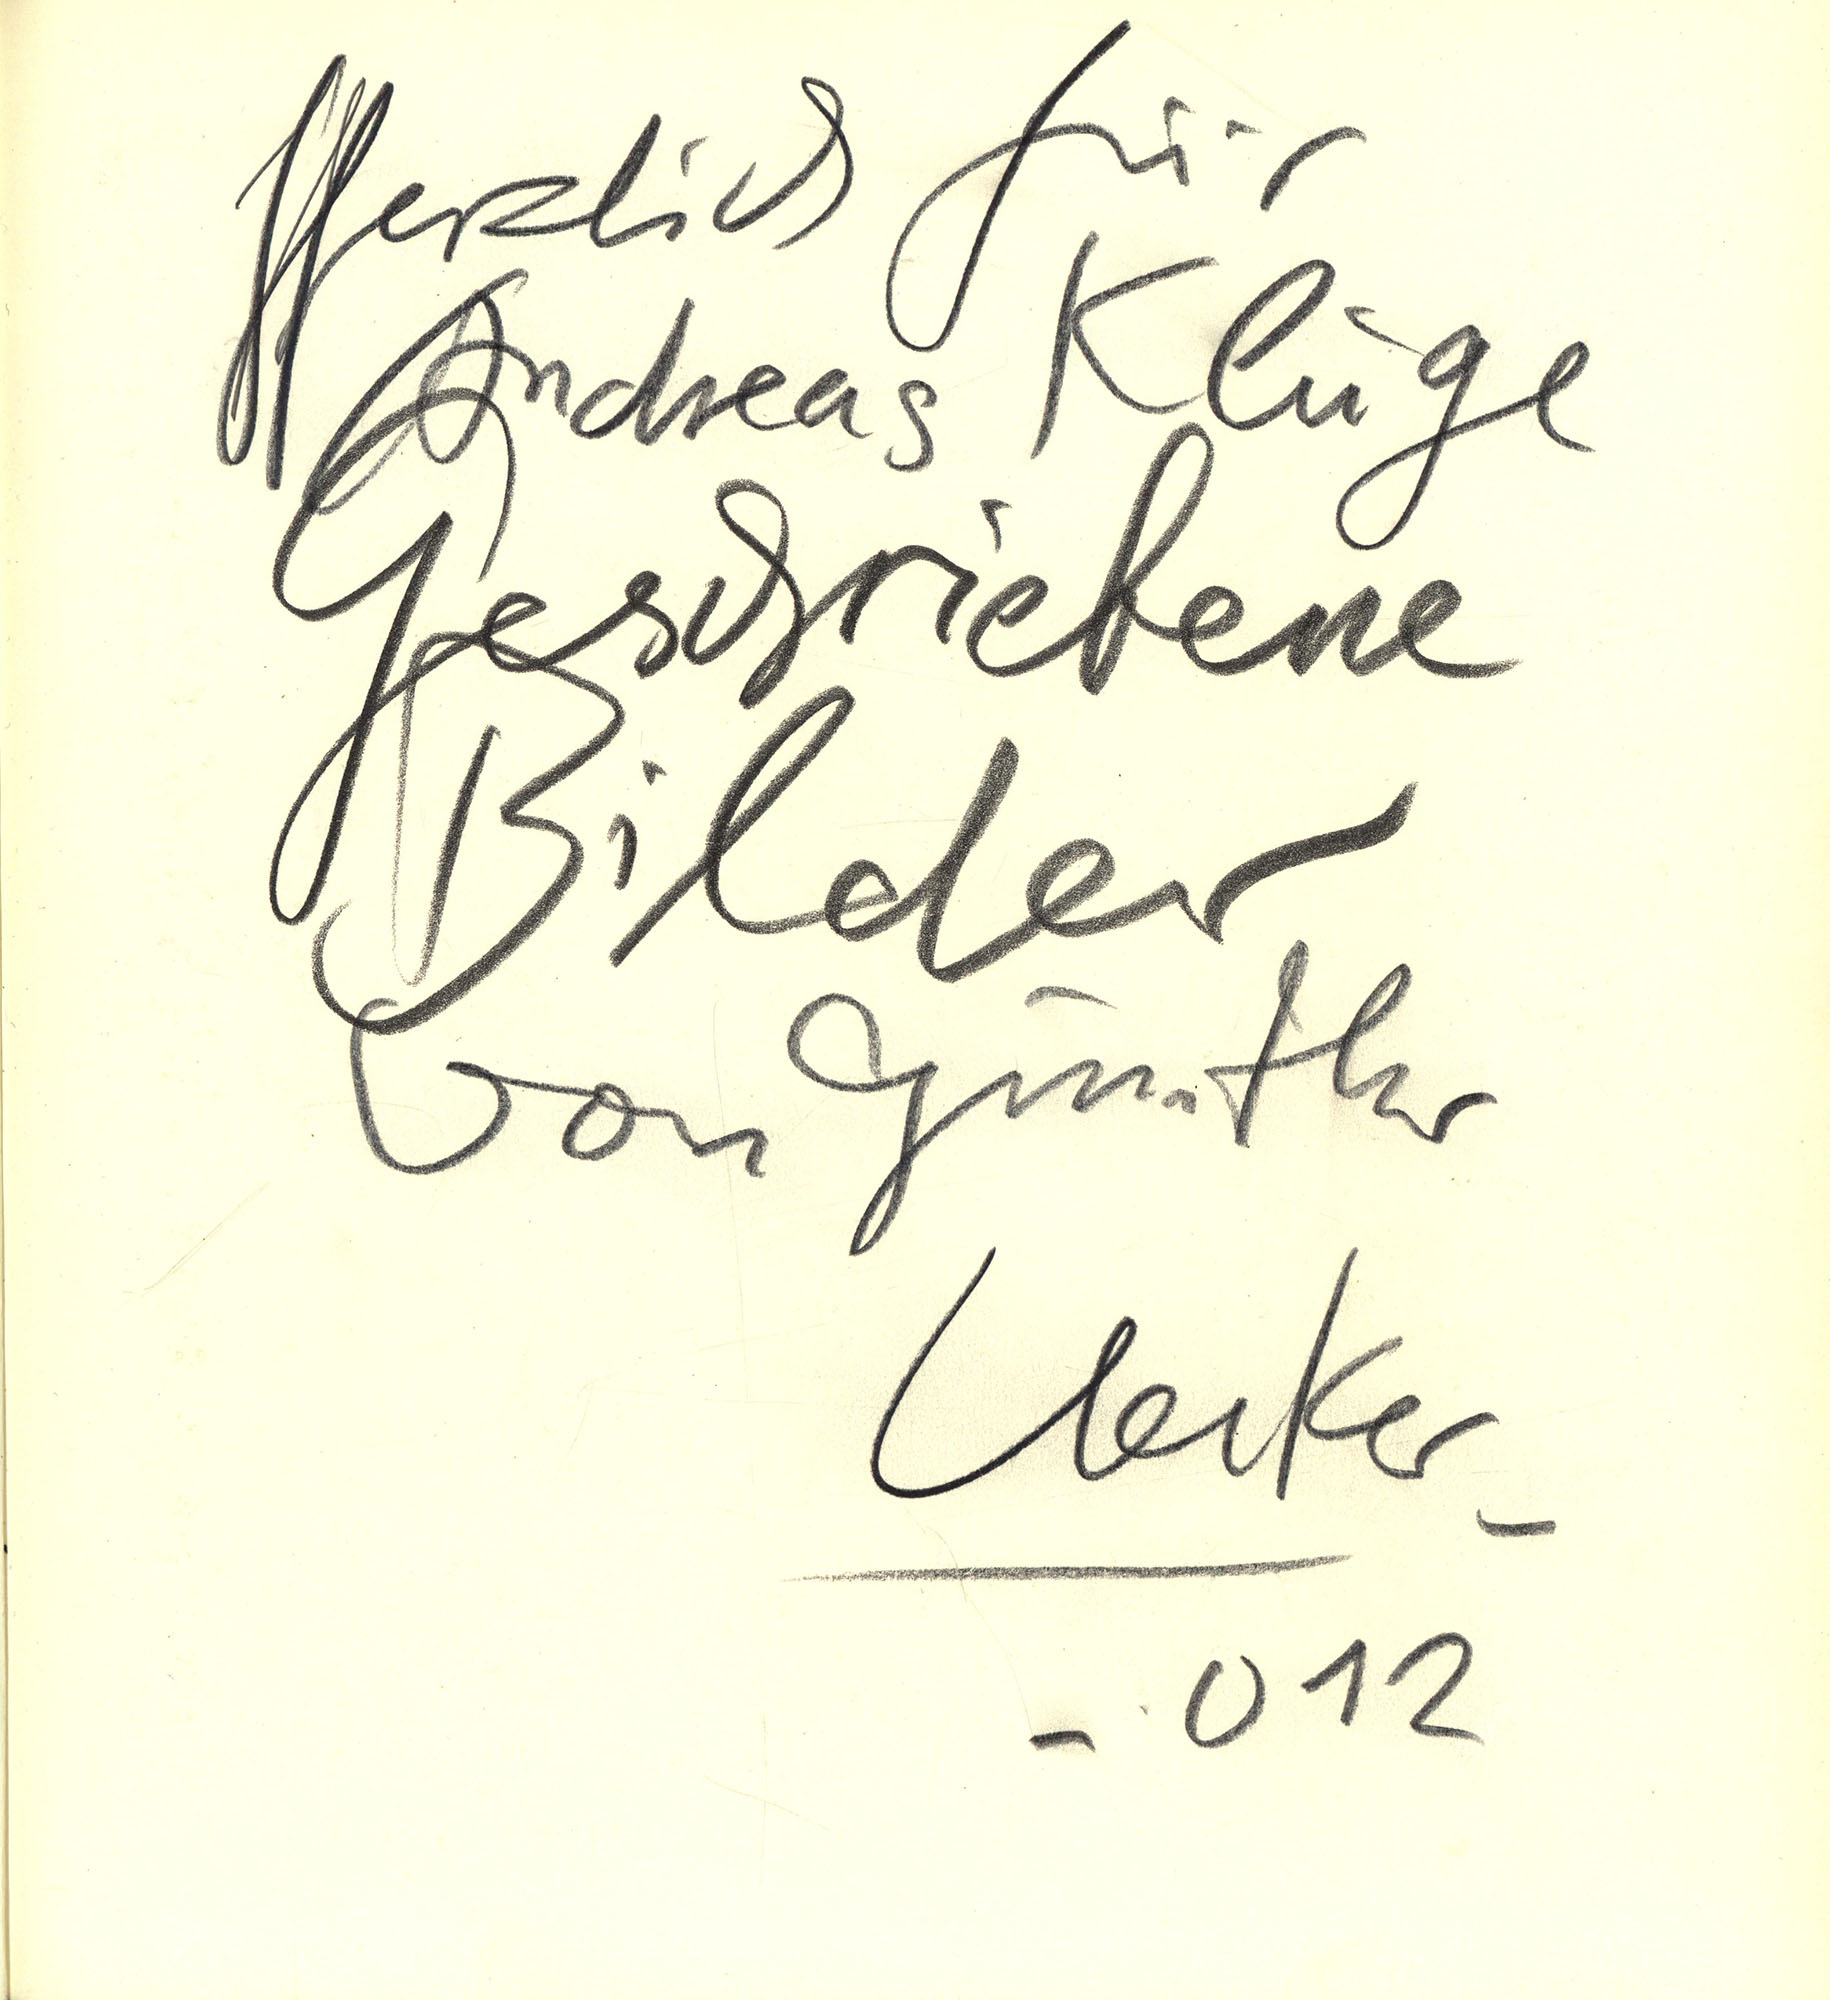 Herzlich für
Andreas Kluge
Geschriebene
Bilder
von Günther
Uecker -
- . 012